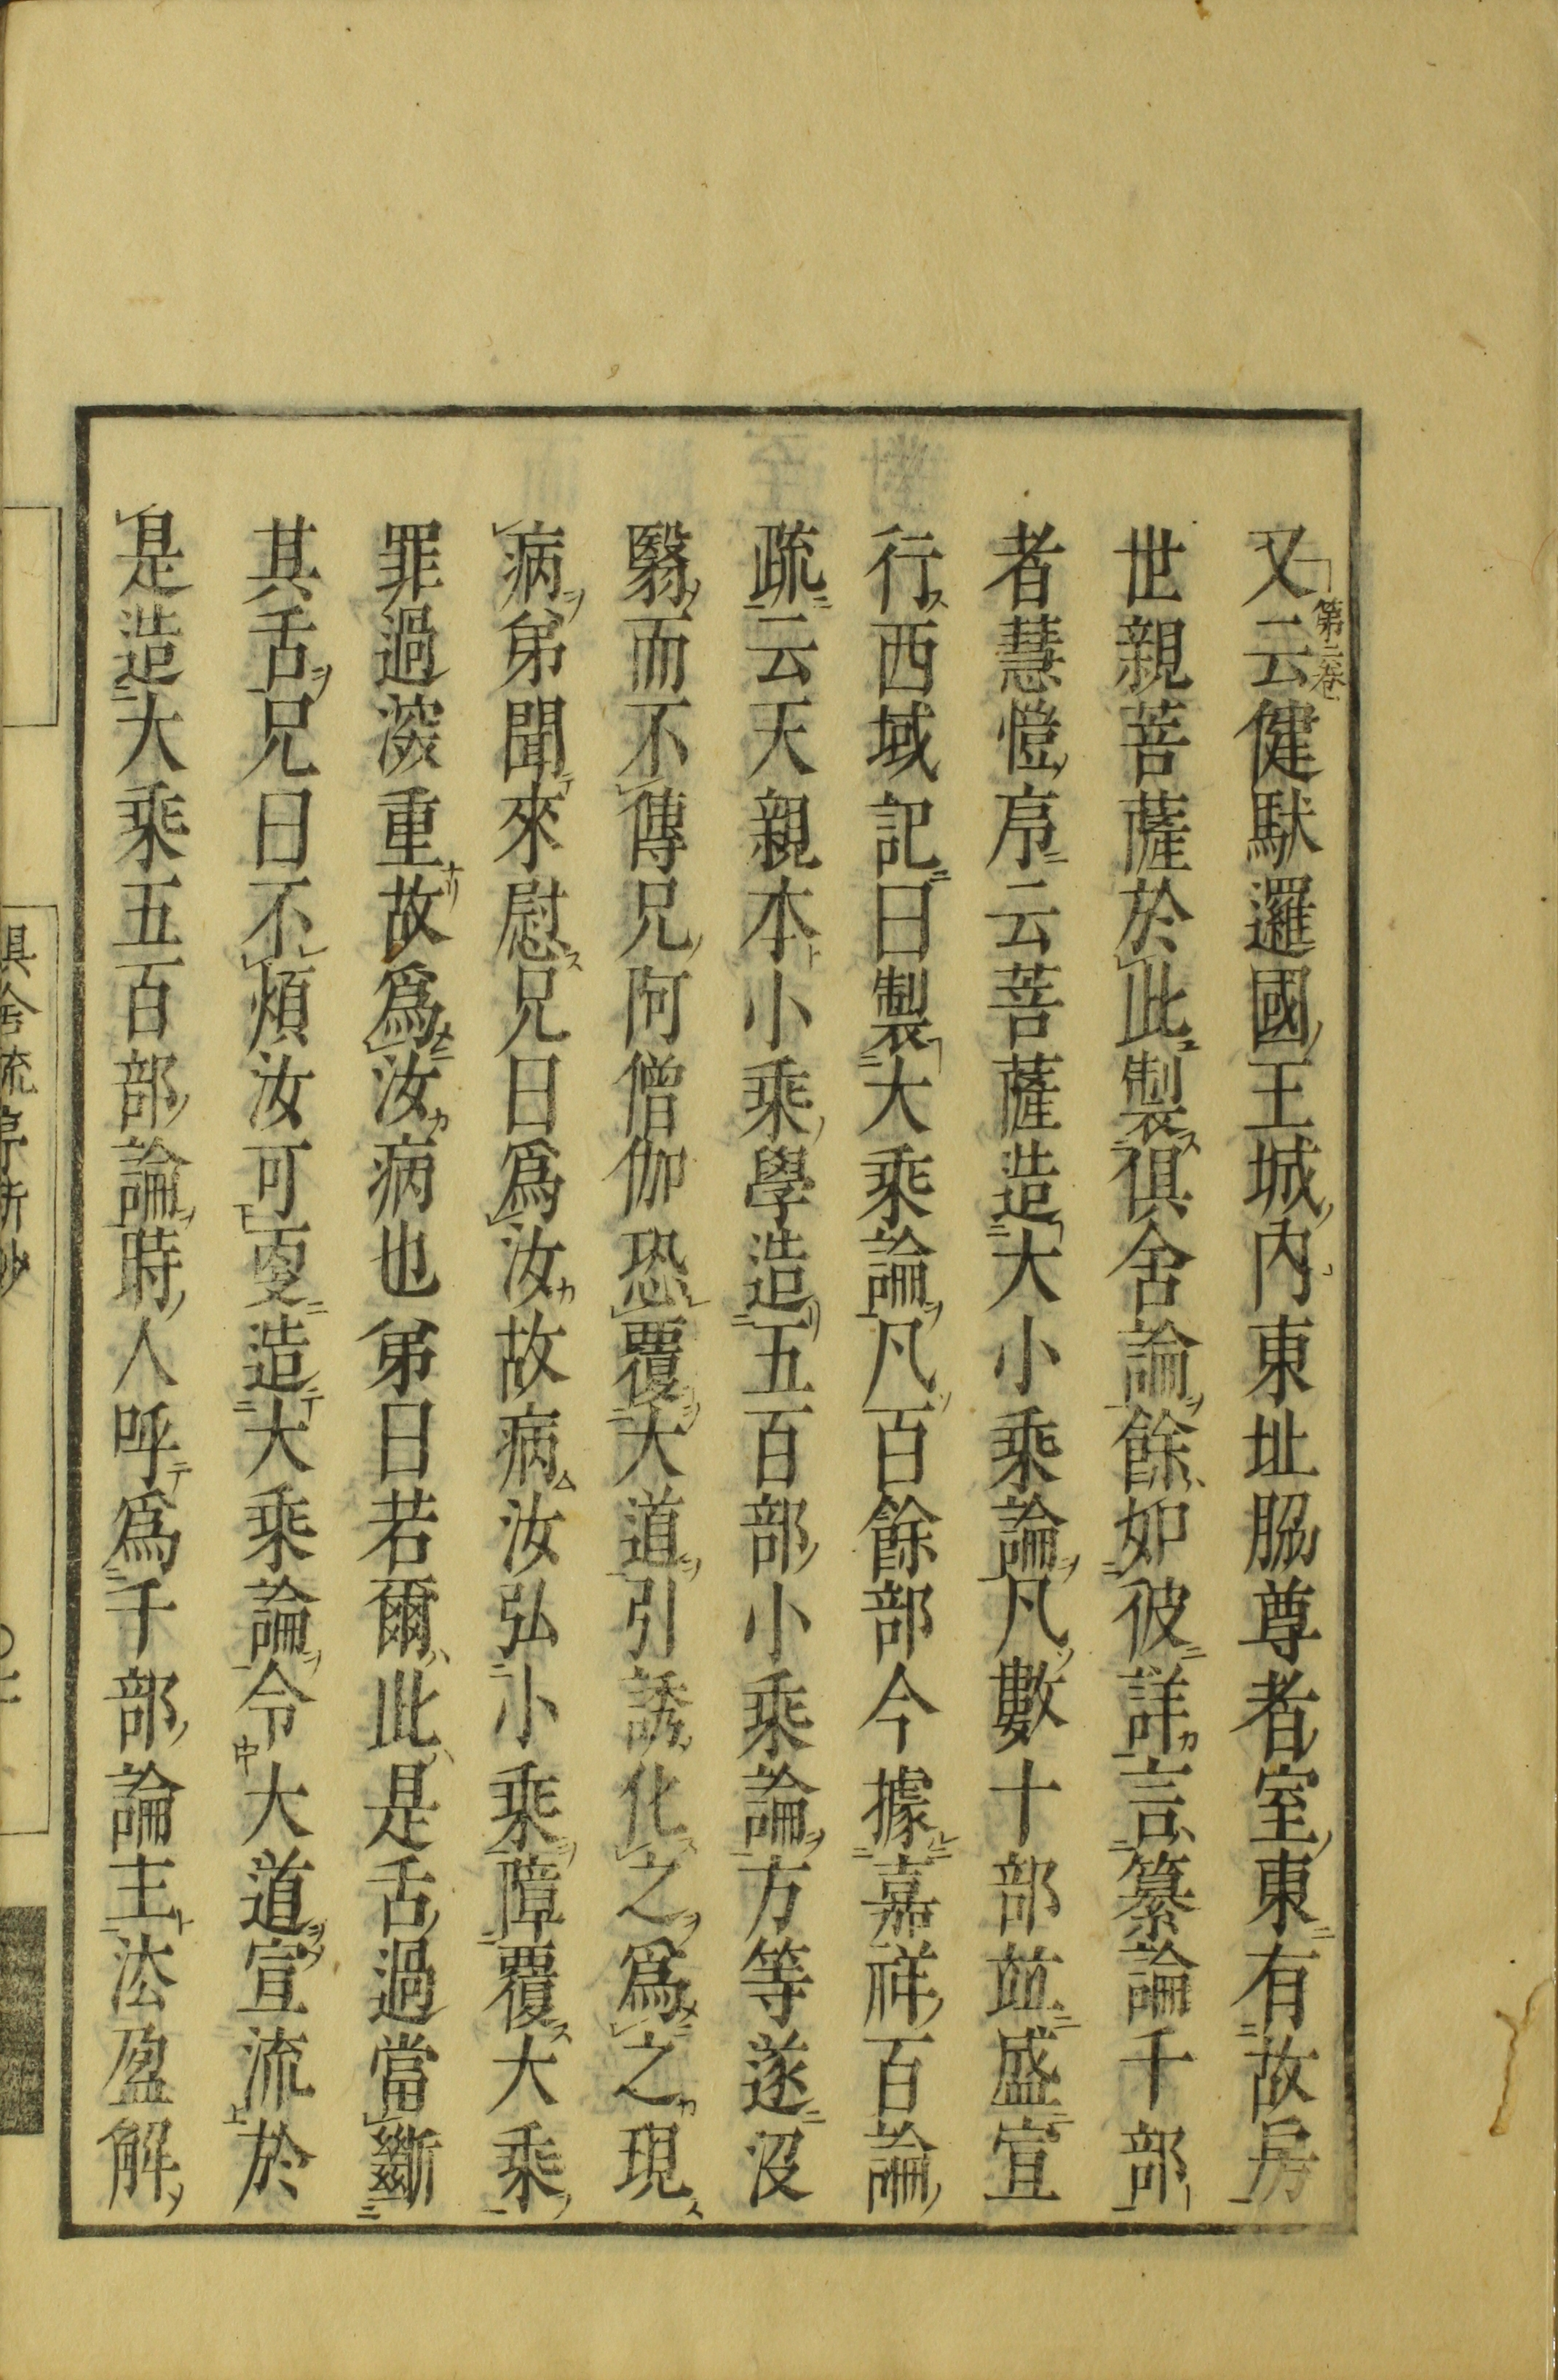 又云健駄邏國王城内東北脇尊者室東有故房
第二卷
世親菩薩於此製倶舍論餘如彼詳言纂論千部
者慧愷序云菩薩造大小乘論凡數十部並盛宣
行西域記曰製大乘論凡百餘部今據嘉祥百論
疏云天親本小乘學造五百部小乘論方等遂沒
翳而不傳兄阿僧伽恐覆大道引誘化之爲之現
病弟聞來慰兄曰爲汝故病汝弘小乘障覆大乘
罪過深重故爲汝病也弟曰若爾此是舌過當斷
其舌兄曰不煩汝可更造大乘論令大道宣流於
是造大乘五百部論時人呼爲千部論主法盈解